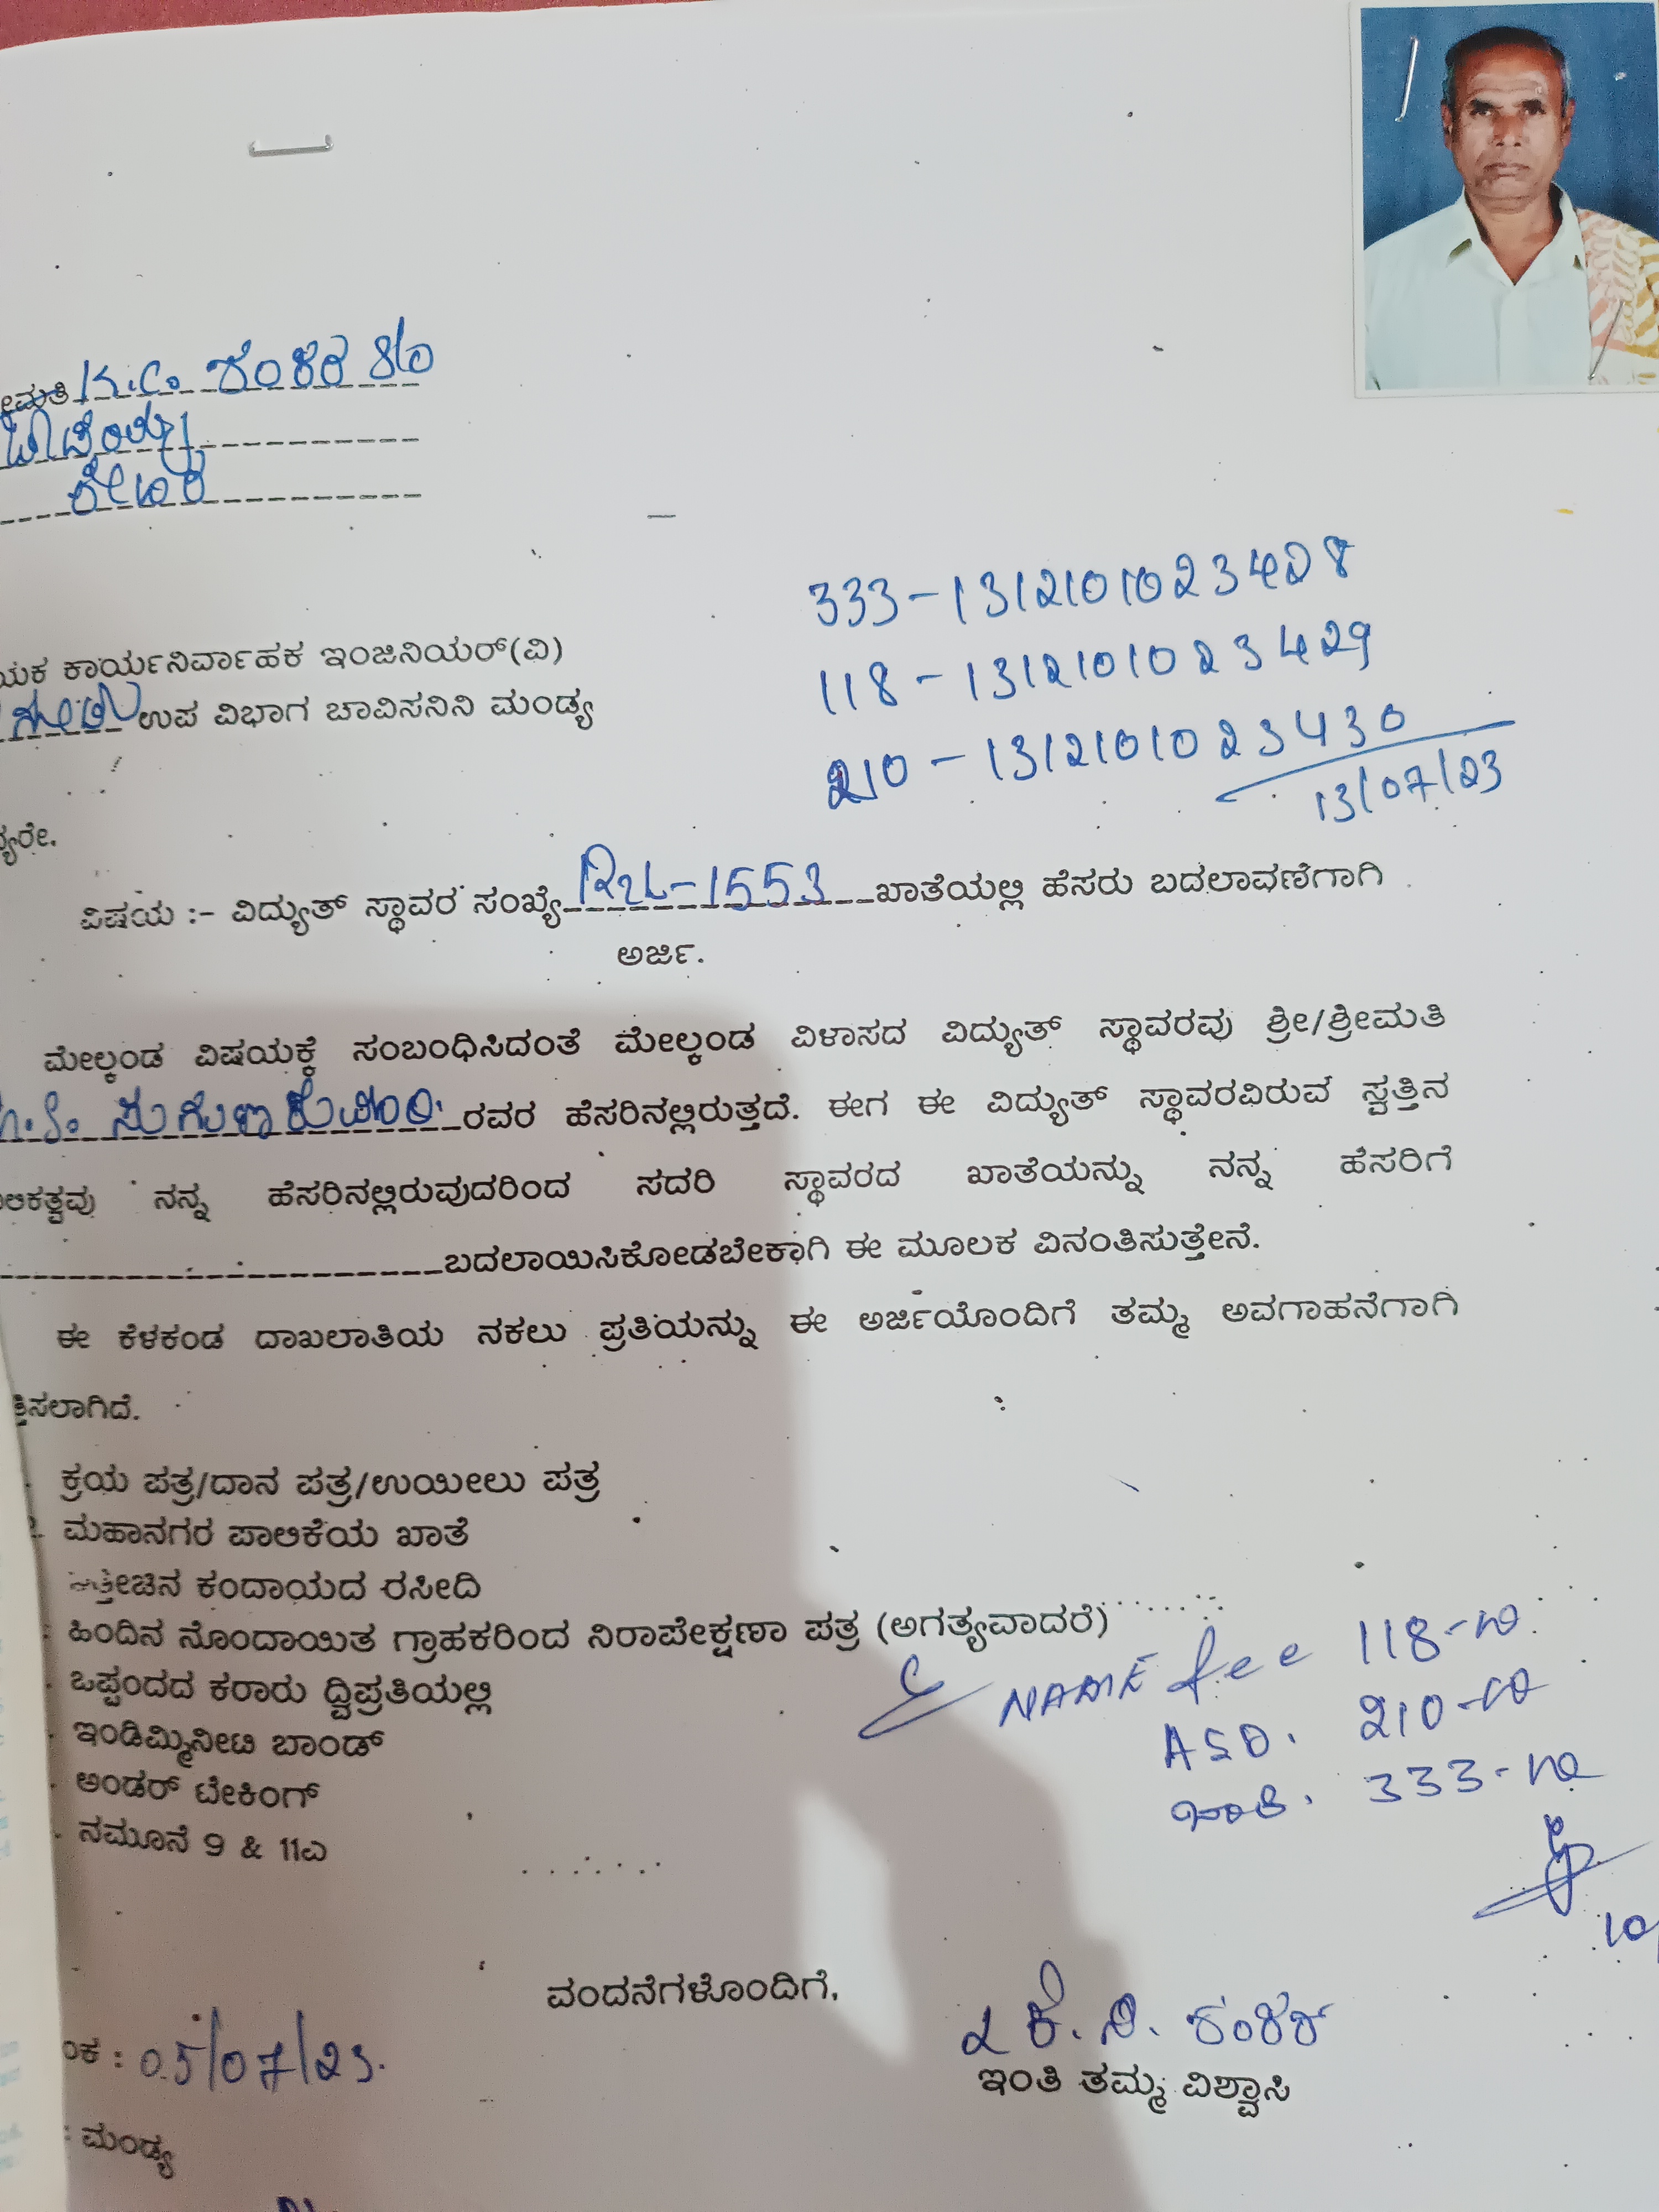 K.C. ಶಂಕರ S/o
333-1312101023428
118-1312101023429
ಕಾರ್ಯನಿರ್ವಾಹಕ ಇಂಜಿನಿಯರ್(ವಿ)
ಉಪ ವಿಭಾಗ ಚಾವಿಸನಿನಿ ಮಂಡ್ಯ
210-1312101023430
13/07/23
ವಿಷಯ :- ವಿದ್ಯುತ್ ಸ್ಥಾವರ ಸಂಖ್ಯೆ -1553 ಖಾತೆಯಲ್ಲಿ ಹೆಸರು ಬದಲಾವಣೆಗಾಗಿ
ಅರ್ಜಿ.
ಮೇಲ್ಕಂಡ ವಿಷಯಕ್ಕೆ ಸಂಬಂಧಿಸಿದಂತೆ ಮೇಲ್ಕಂಡ ವಿಳಾಸದ ವಿದ್ಯುತ್ ಸ್ಥಾವರವು ಶ್ರೀ/ಶ್ರೀಮತಿ
ರವರ ಹೆಸರಿನಲ್ಲಿರುತ್ತದೆ. ಈಗ ಈ ವಿದ್ಯುತ್ ಸ್ಥಾವರವಿರುವ ಸ್ವತ್ತಿನ
ನನ್ನ ಹೆಸರಿನಲ್ಲಿರುವುದರಿಂದ ಸದರಿ ಸ್ಥಾವರದ ಖಾತೆಯನ್ನು ನನ್ನ ಹೆಸರಿಗೆ
ಬದಲಾಯಿಸಿಕೋಡಬೇಕಾಗಿ ಈ ಮೂಲಕ ವಿನಂತಿಸುತ್ತೇನೆ.
ಈ ಕೆಳಕಂಡ ದಾಖಲಾತಿಯ ನಕಲು ಪ್ರತಿಯನ್ನು ಈ ಅರ್ಜಿಯೊಂದಿಗೆ ತಮ್ಮ ಅವಗಾಹನೆಗಾಗಿ
ತ್ತಿಸಲಾಗಿದೆ.
ಕ್ರಯ ಪತ್ರ/ದಾನ ಪತ್ರ/ಉಯೀಲು ಪತ್ರ
ಮಹಾನಗರ ಪಾಲಿಕೆಯ ಖಾತೆ
ಕಂದಾಯದ ರಸೀದಿ
ಹಿಂದಿನ ನೊಂದಾಯಿತ ಗ್ರಾಹಕರಿಂದ ನಿರಾಪೇಕ್ಷಣಾ ಪತ್ರ (ಅಗತ್ಯವಾದರೆ)
ಒಪ್ಪಂದದ ಕರಾರು ದ್ವಿಪ್ರತಿಯಲ್ಲಿ
ಇಂಡಿಮ್ಮಿನೀಟಿ ಬಾಂಡ್
ಅಂಡರ್ ಟೇಕಿಂಗ್
ನಮೂನೆ 9 & 11ಎ
NAME fee 118-00
ASD. 210-00
333-00
ವಂದನೆಗಳೊಂದಿಗೆ,
ಕೆ.ಸಿ. ಶಂಕರ್
ಇಂತಿ ತಮ್ಮ ವಿಶ್ವಾಸಿ
05/07/23.
: ಮಂಡ್ಯ